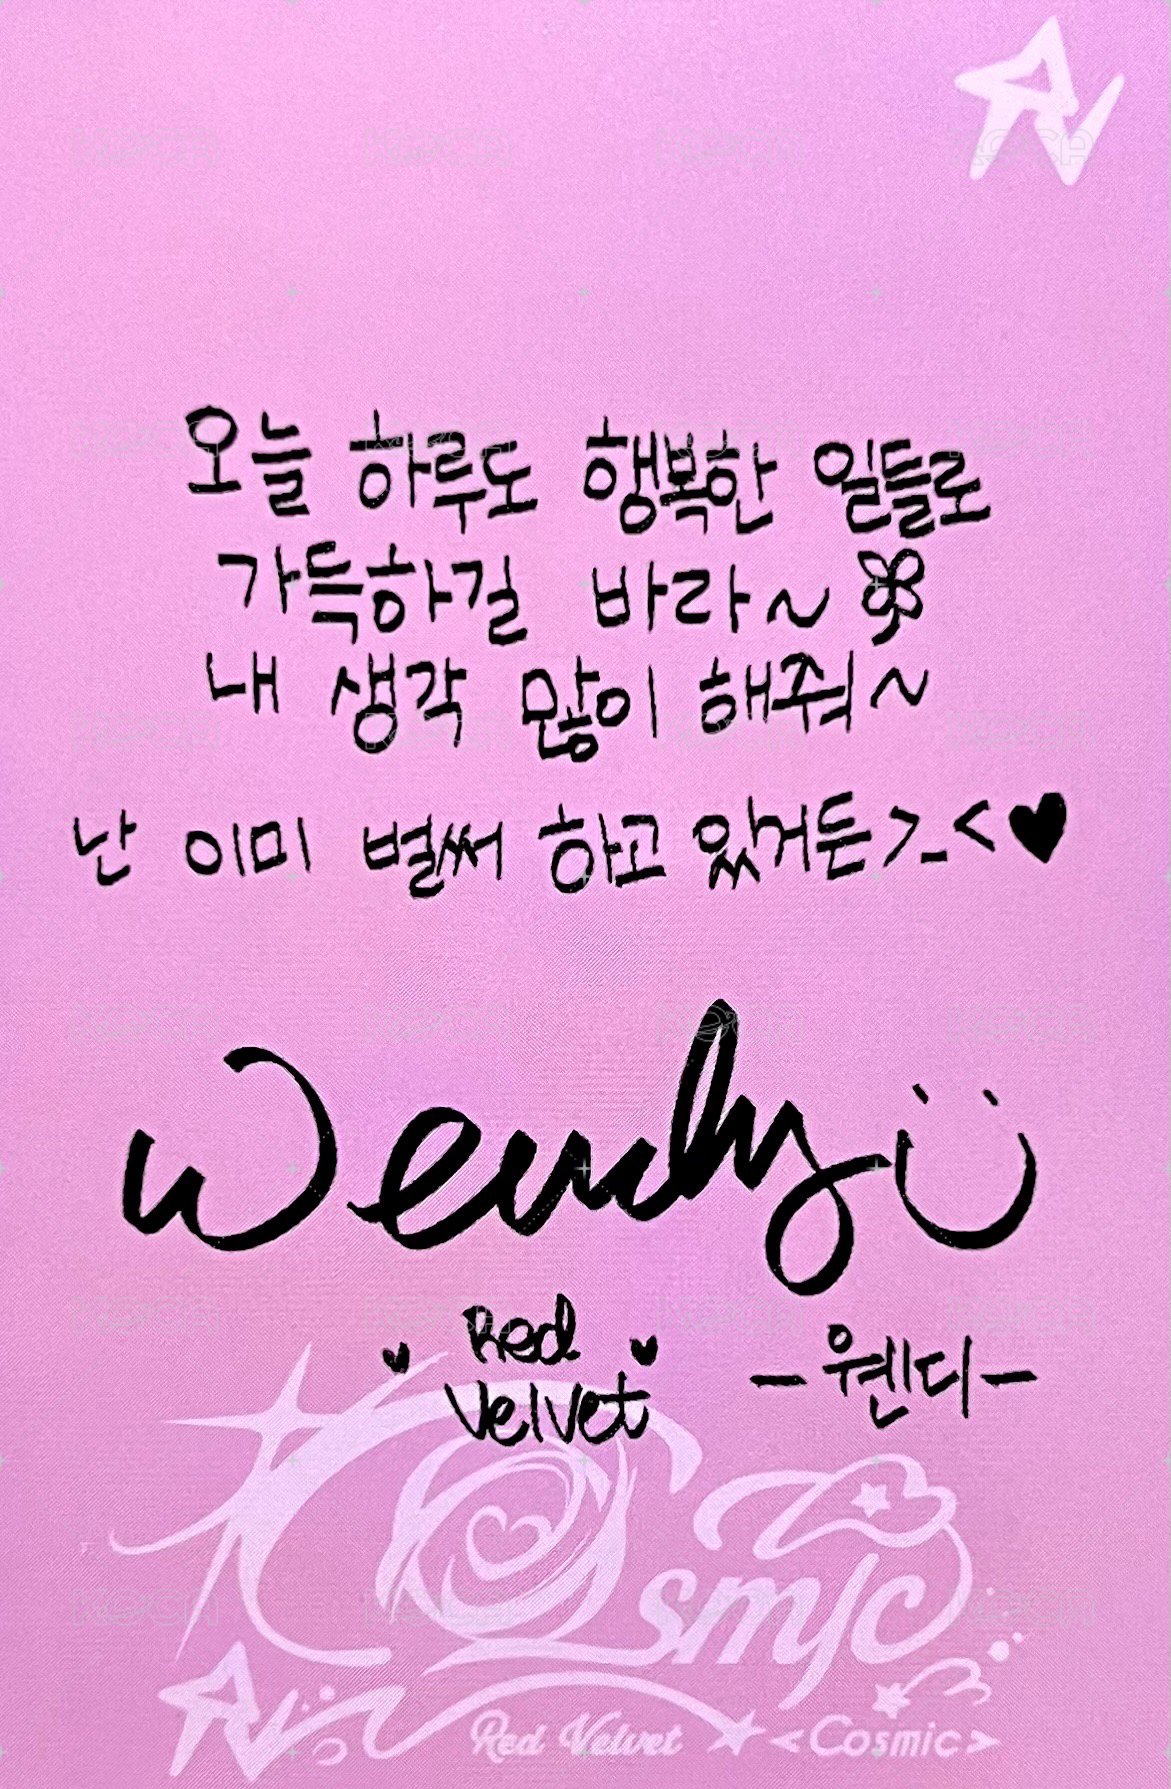 오늘 하루도 행복한 일들로
가득하길 바라~
내 생각 많이 해줘~
난 이미 벌써 하고 있거든>_<♥
Wendy
Red
Velvet
-웬디-
Cosmic
Red Velvet <Cosmic>